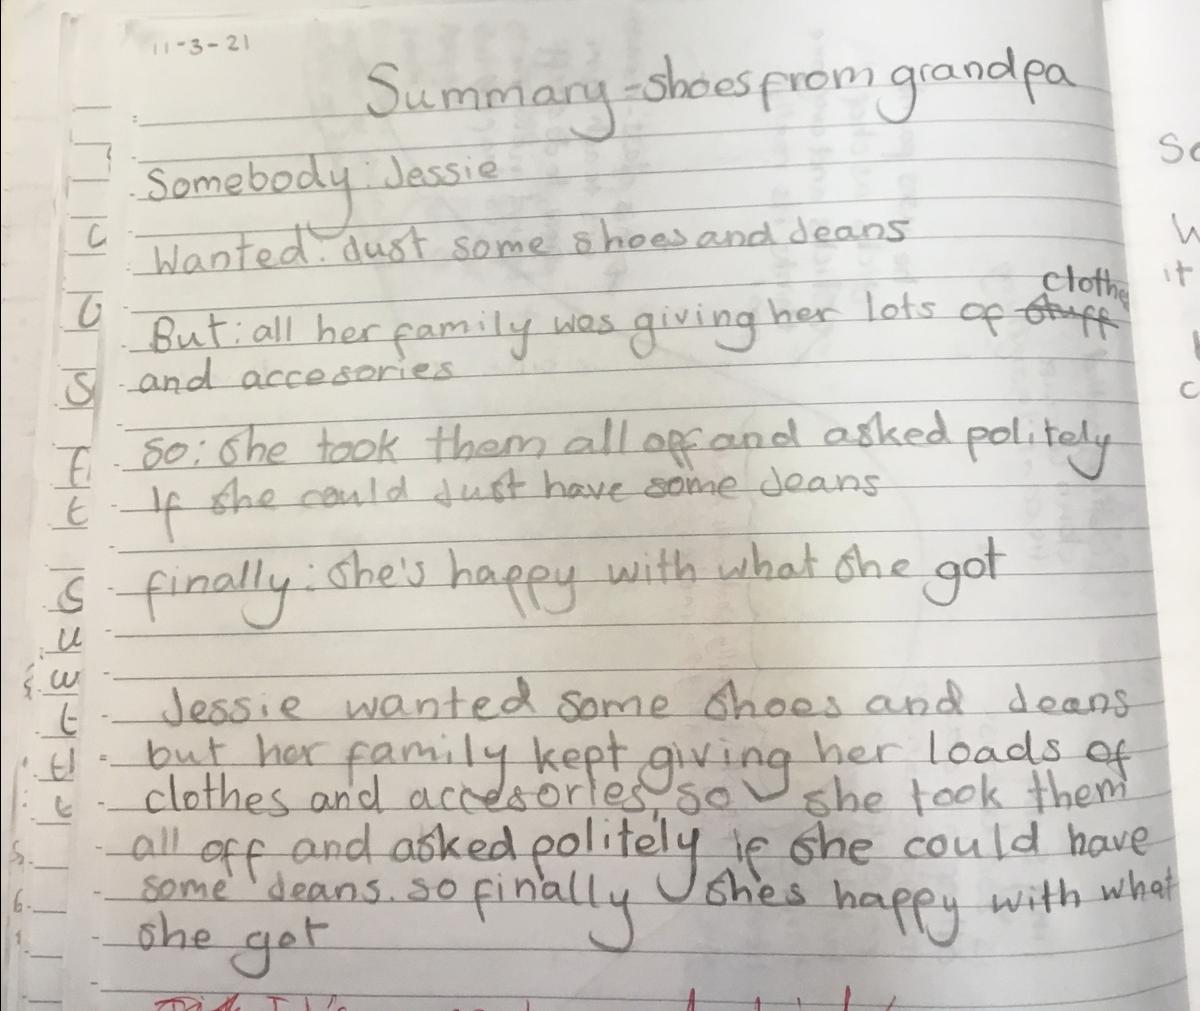 11-3-21
Summary-shoes from grandpa
Somebody: Jessie
Wanted: Just some shoes and Jeans
But: all her family was giving her lots of stuff clothe
and accesories
So: She took them all off and asked politely
If she could Just have some Jeans
finally: she's happy with what she got
Jessie wanted some shoes and Jeans
but her family kept giving her loads of
clothes and accesories, so she took them
all off and asked politely if she could have
some Jeans. so finally she's happy with what
she got